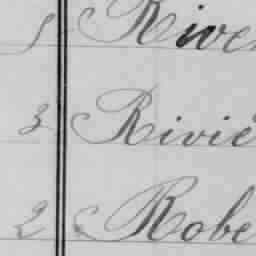 5 Rive
3 Rivié
2 Robe